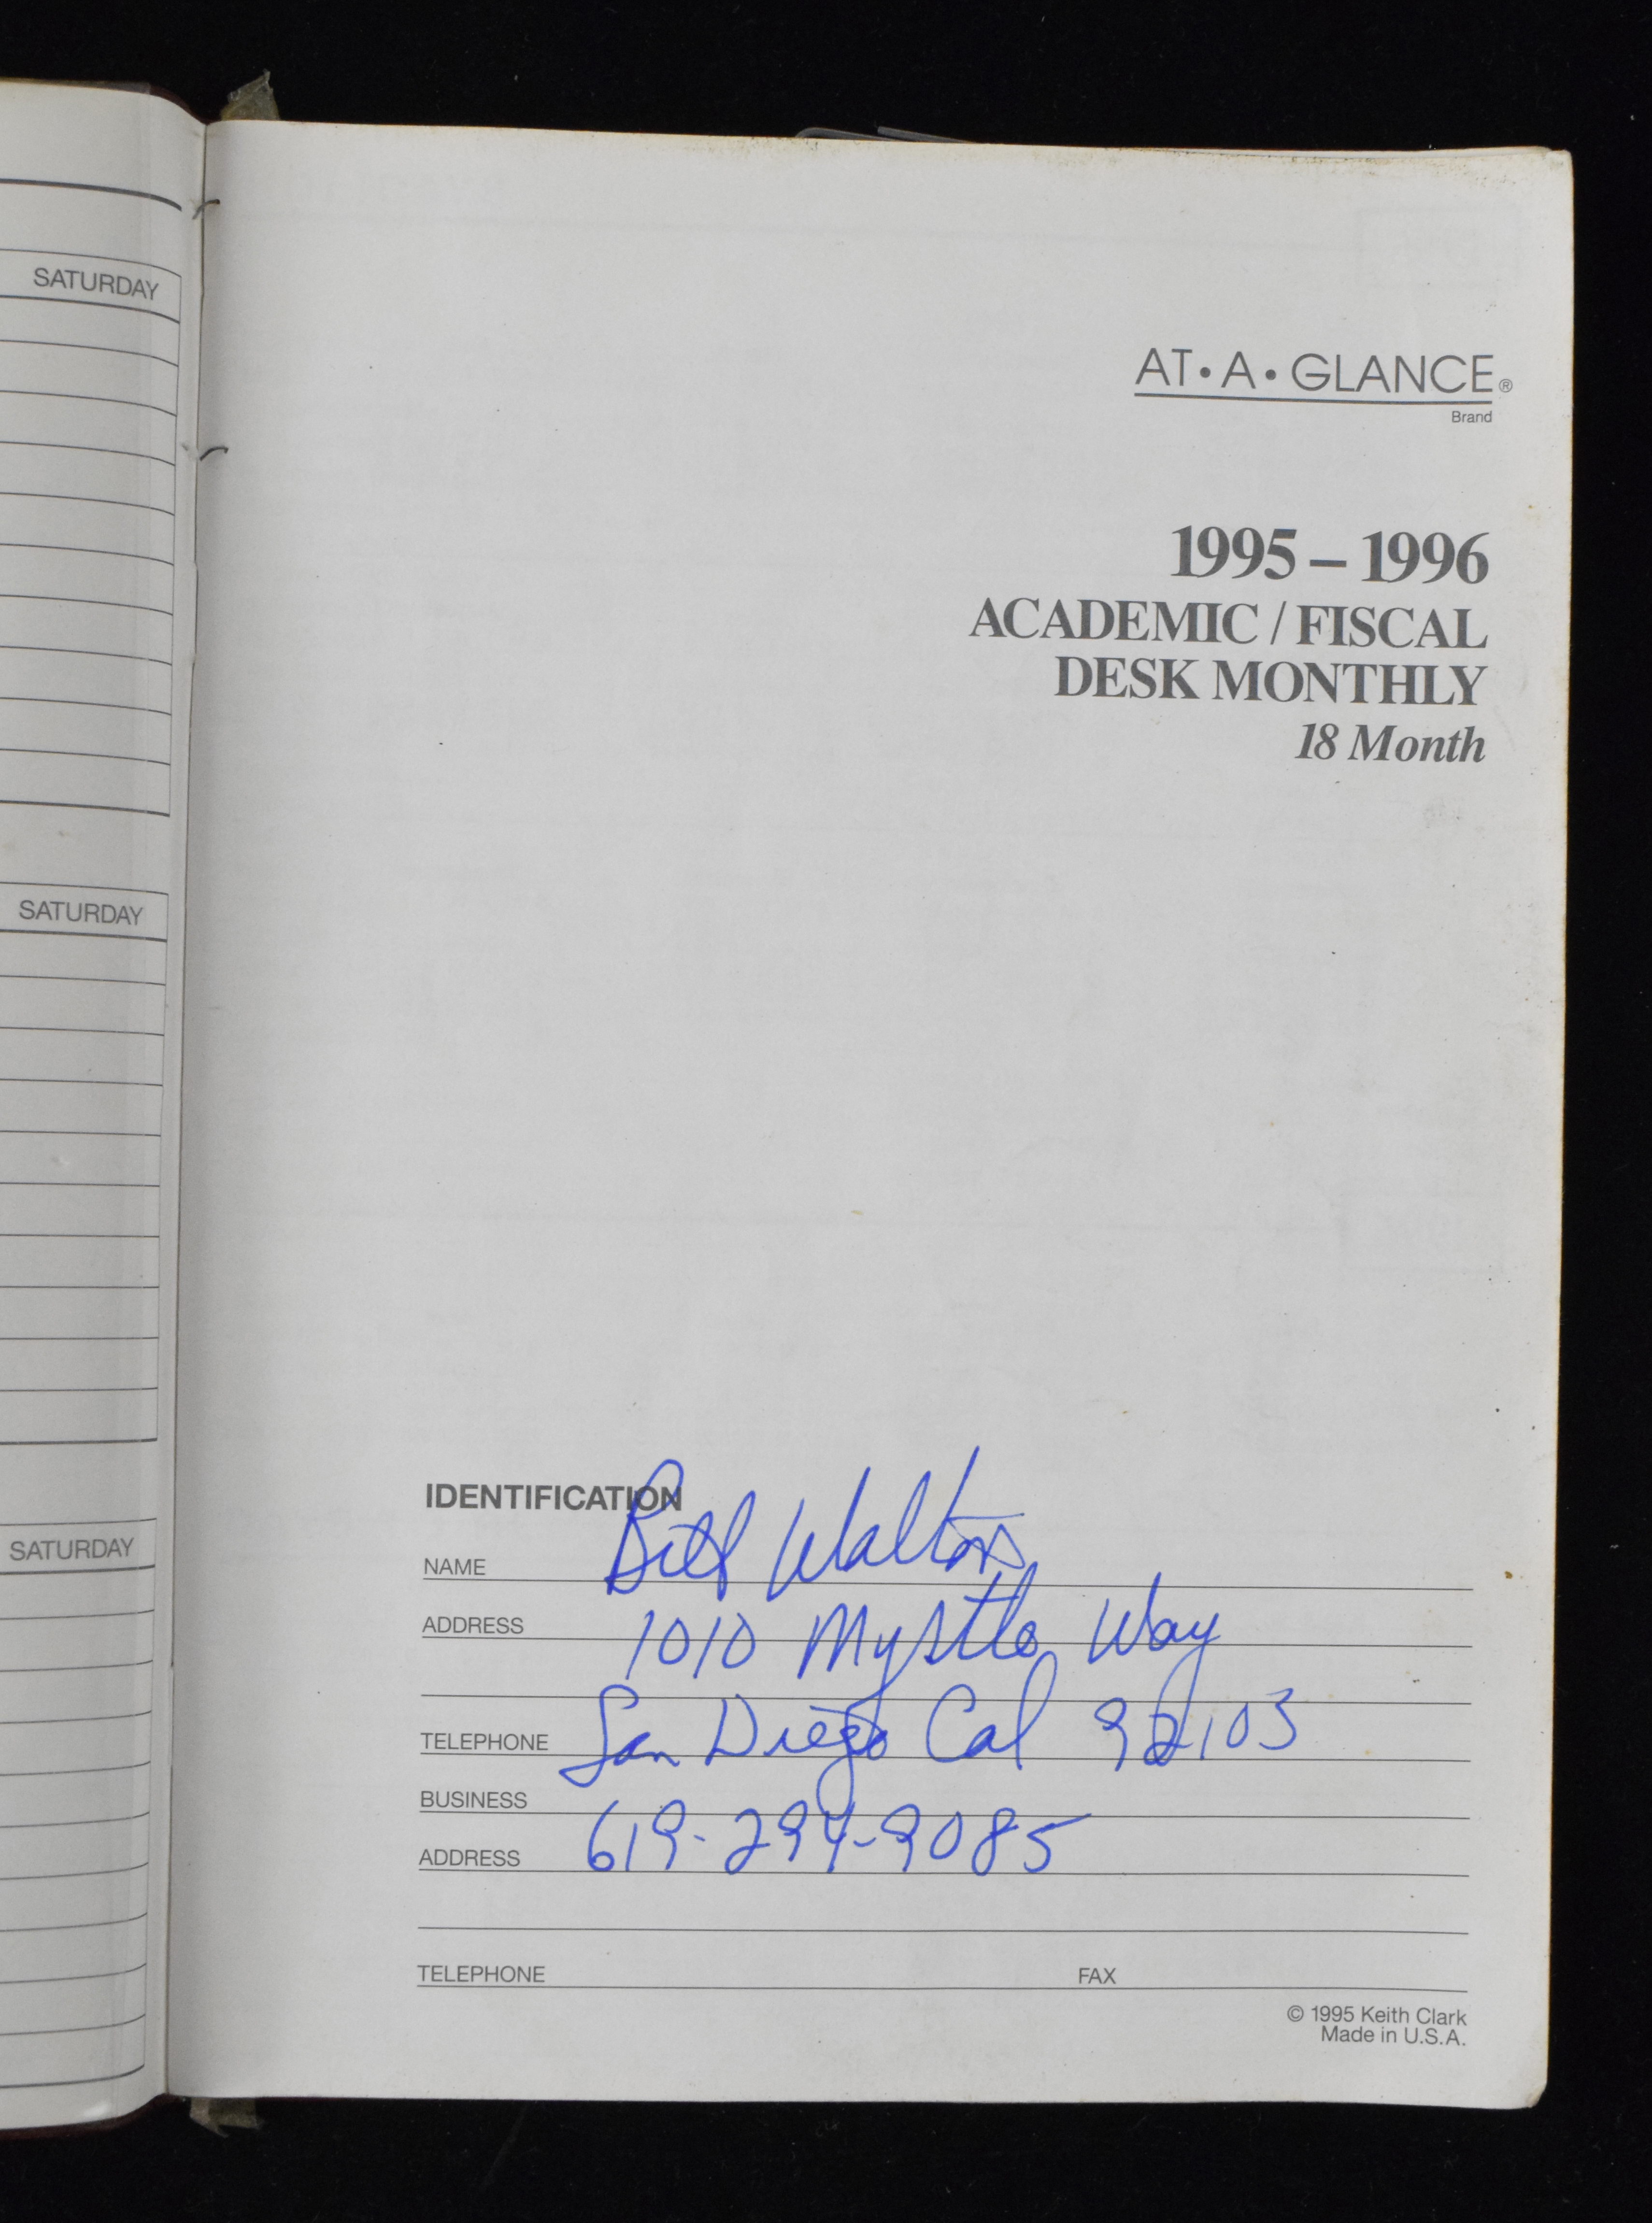 SATURDAY
SATURDAY
SATURDAY
AT•A•GLANCE®
Brand
1995 – 1996
ACADEMIC / FISCAL
DESK MONTHLY
18 Month
IDENTIFICATION
NAME Bill Walton
ADDRESS 1010 Myrtle Way
TELEPHONE San Diego Cal 92103
BUSINESS
ADDRESS 619-294-9085
TELEPHONE FAX
© 1995 Keith Clark
Made in U.S.A.